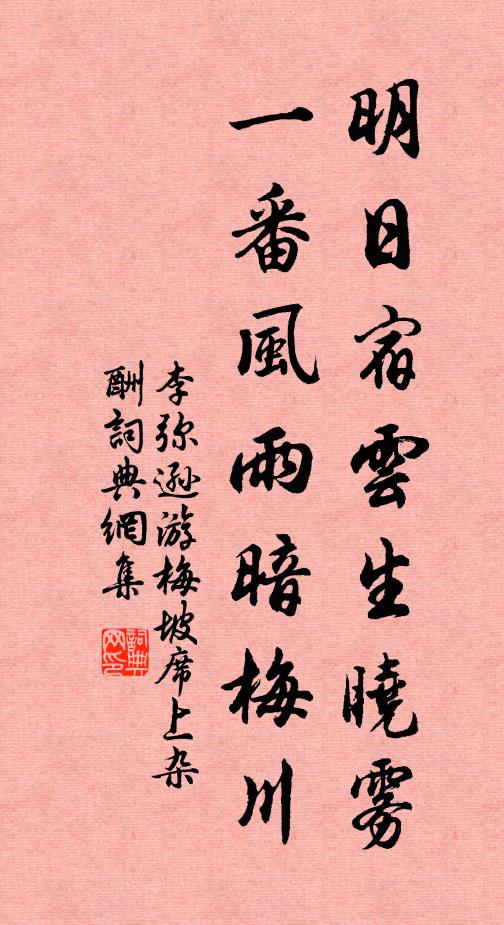 明日宿雲生曉霧
一番風雨暗梅川
李弥遜游梅坡席上杂
酬詞典網集
詞典网印